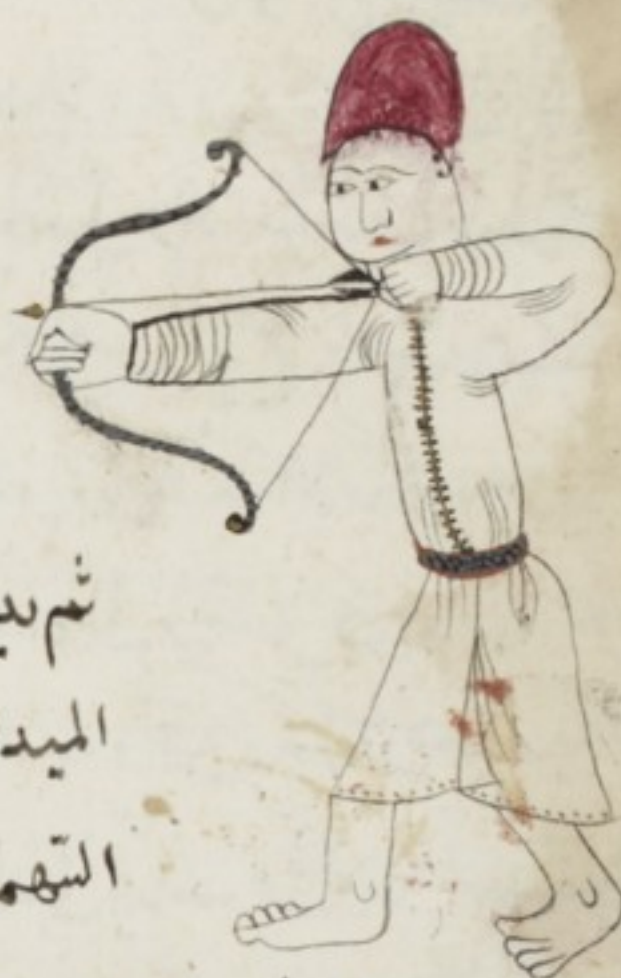 ثم يد
الميد
السّهم